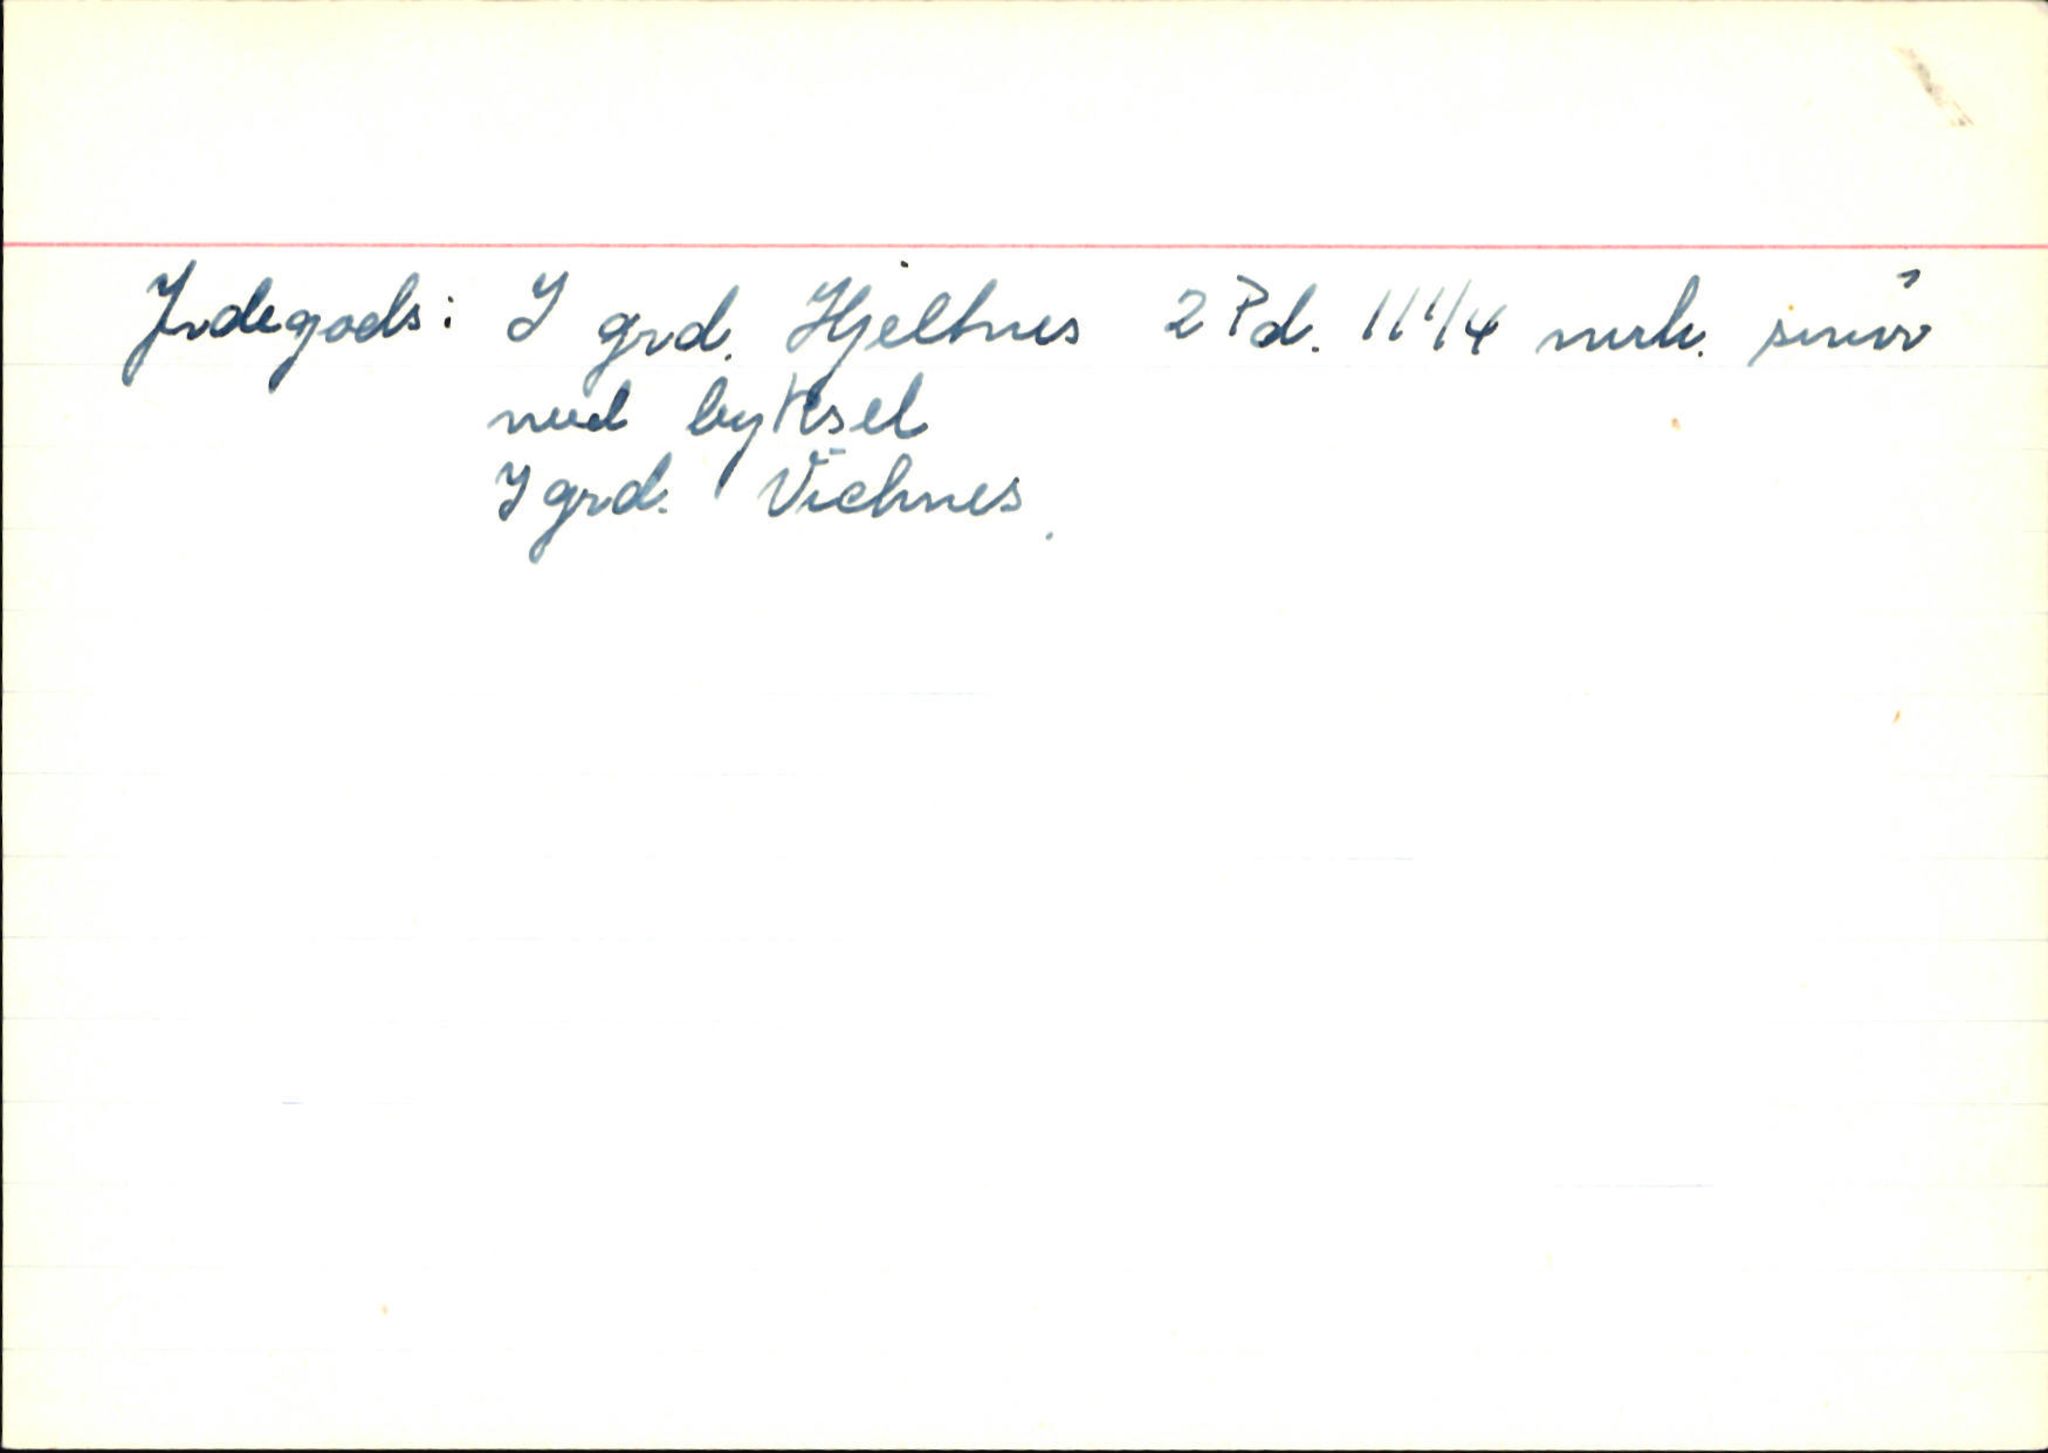 Jordegods: I grd. Hjeltnes 2 Pd. 11 1/4 mrk. smør
med byksel
I grd. Vichnes.